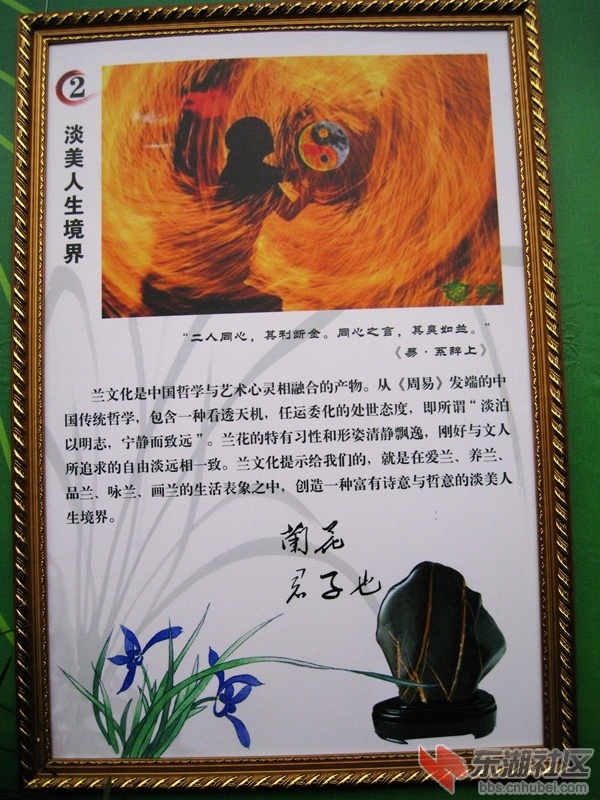 2
淡美人生境界
“二人同心，其利断金。同心之言，其臭如兰。”
《易·系辞上》
兰文化是中国哲学与艺术心灵相融合的产物。从《周易》发端的中
国传统哲学，包含一种看透天机，任运委化的处世态度，即所谓“淡泊
以明志，宁静而致远”。兰花的特有习性和形姿清静飘逸，刚好与文人
所追求的自由淡远相一致。兰文化提示给我们的，就是在爱兰、养兰、
品兰、咏兰、画兰的生活表象之中，创造一种富有诗意与哲意的淡美人
生境界。
蘭花
君子也
东湖社区
bbs.cnhubei.com